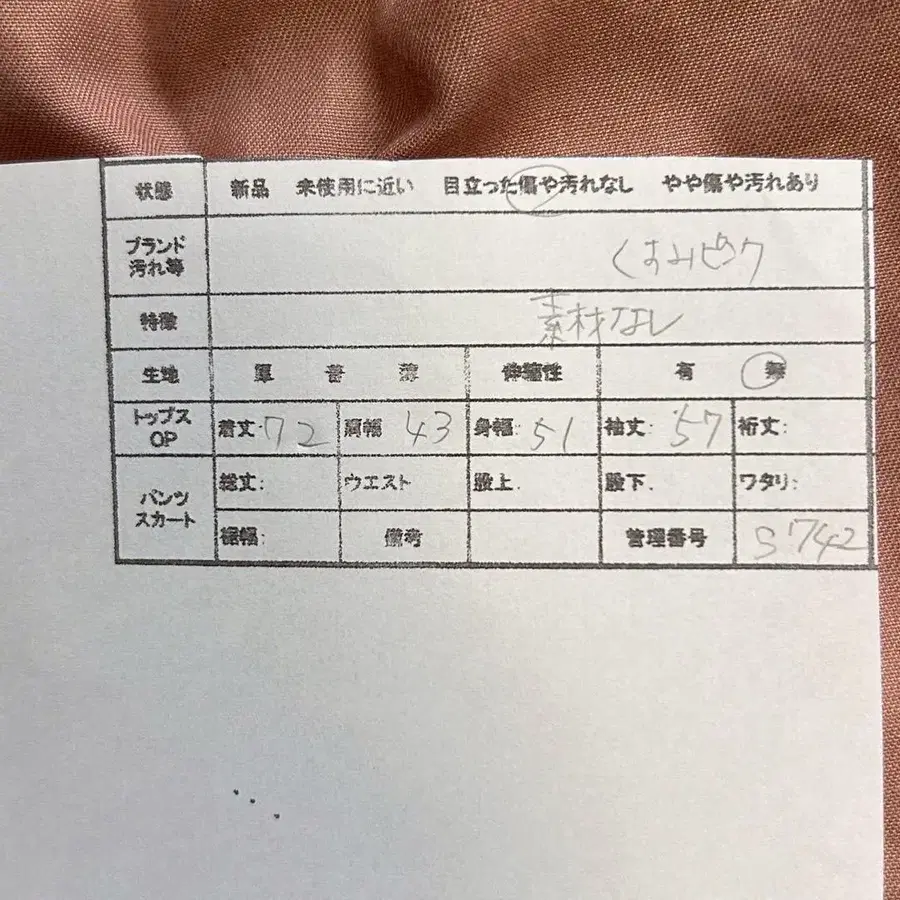 状態 新品 未使用に近い 目立った傷や汚れなし やや傷や汚れあり
ブランド
汚れ等
くすみピンク
特徴 素材なし
生地 厚 普 薄 伸縮性 有 無
トップス
OP
着丈: 72 肩幅 43 身幅: 51 袖丈: 57 裄丈:
パンツ
スカート
総丈: ウエスト 股上. 股下. ワタリ:
裾幅: 備考 管理番号 S742